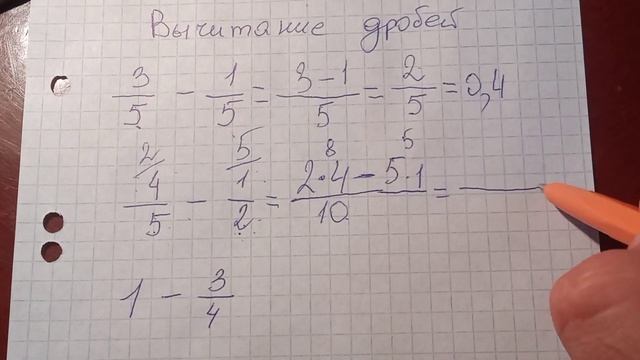 Вычитание дробей
3/5 − 1/5 = (3−1)/5 = 2/5 = 0,4
2/ 5/ 8 5
4/5 − 1/2 = (2·4 − 5·1)/10 =
1 − 3/4